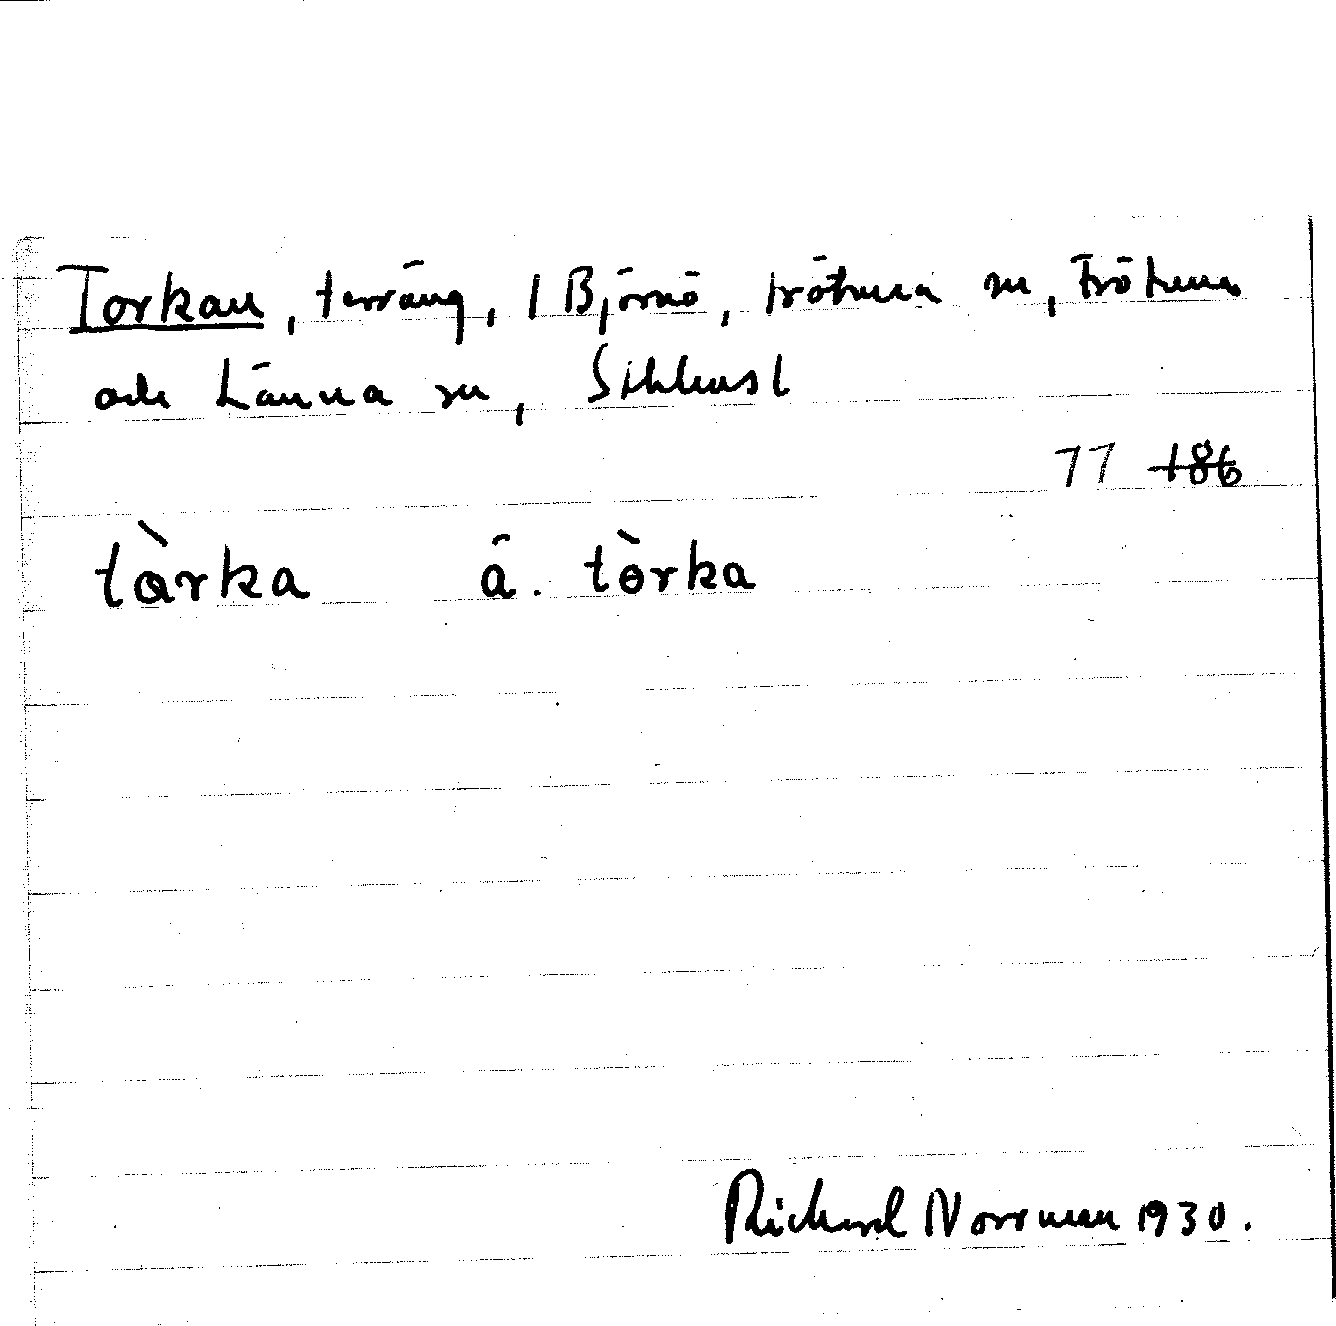 Torkan, terräng, 1 Björnö, Frötuna sn, Frötuna
och Länna sn, Sthlmsl
77 186
tàrka ä. tòrka
Richard Norrman 1930.